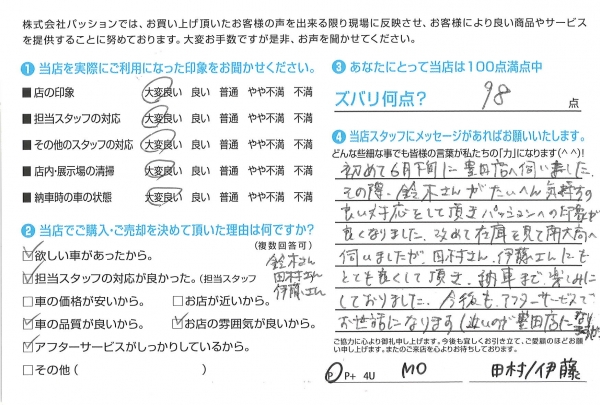 株式会社パッションでは、お買い上げ頂いたお客様の声を出来る限り現場に反映させ、お客様により良い商品やサービス
を提供することに努めております。大変お手数ですが是非、お声を聞かせてください。
① 当店を実際にご利用になった印象をお聞かせください。
■ 店の印象 大変良い 良い 普通 やや不満 不満
■ 担当スタッフの対応 大変良い 良い 普通 やや不満 不満
■ その他のスタッフの対応 大変良い 良い 普通 やや不満 不満
■ 店内・展示場の清掃 大変良い 良い 普通 やや不満 不満
■ 納車時の車の状態 大変良い 良い 普通 やや不満 不満
② 当店でご購入・ご売却を決めて頂いた理由は何ですか?
(複数回答可)
☑欲しい車があったから。
☑担当スタッフの対応が良かった。(担当スタッフ
鈴木さん
田村さん
伊藤さん
□車の価格が安いから。 □お店が近いから。
☑車の品質が良いから。 ☑お店の雰囲気が良いから。
☑アフターサービスがしっかりしているから。
□その他 ( )
③ あなたにとって当店は100点満点中
ズバリ何点? 98 点
④ 当店スタッフにメッセージがあればお願いいたします。
どんな些細な事でも皆様の言葉が私たちの「力」になります(^^)!
初めて6月下旬に豊田店へ伺いました。
その際、鈴木さんがたいへん気持ちの
良い対応をして頂きパッションへの印象が
良くなりました。改めて在庫を見て南大高へ
伺いましたが、田村さん、伊藤さんにも
とても良くして頂き、納車まで楽しみに
しておりました。今後も、アフターサービスで
お世話になります(近いのが豊田店に
ご協力に心より御礼申し上げます。今後も宜しくお引き立て、ご愛顧のほどお願
い申し上げます。またのご来店を心よりお待ちしております。
P P+ 4U MO 田村/伊藤